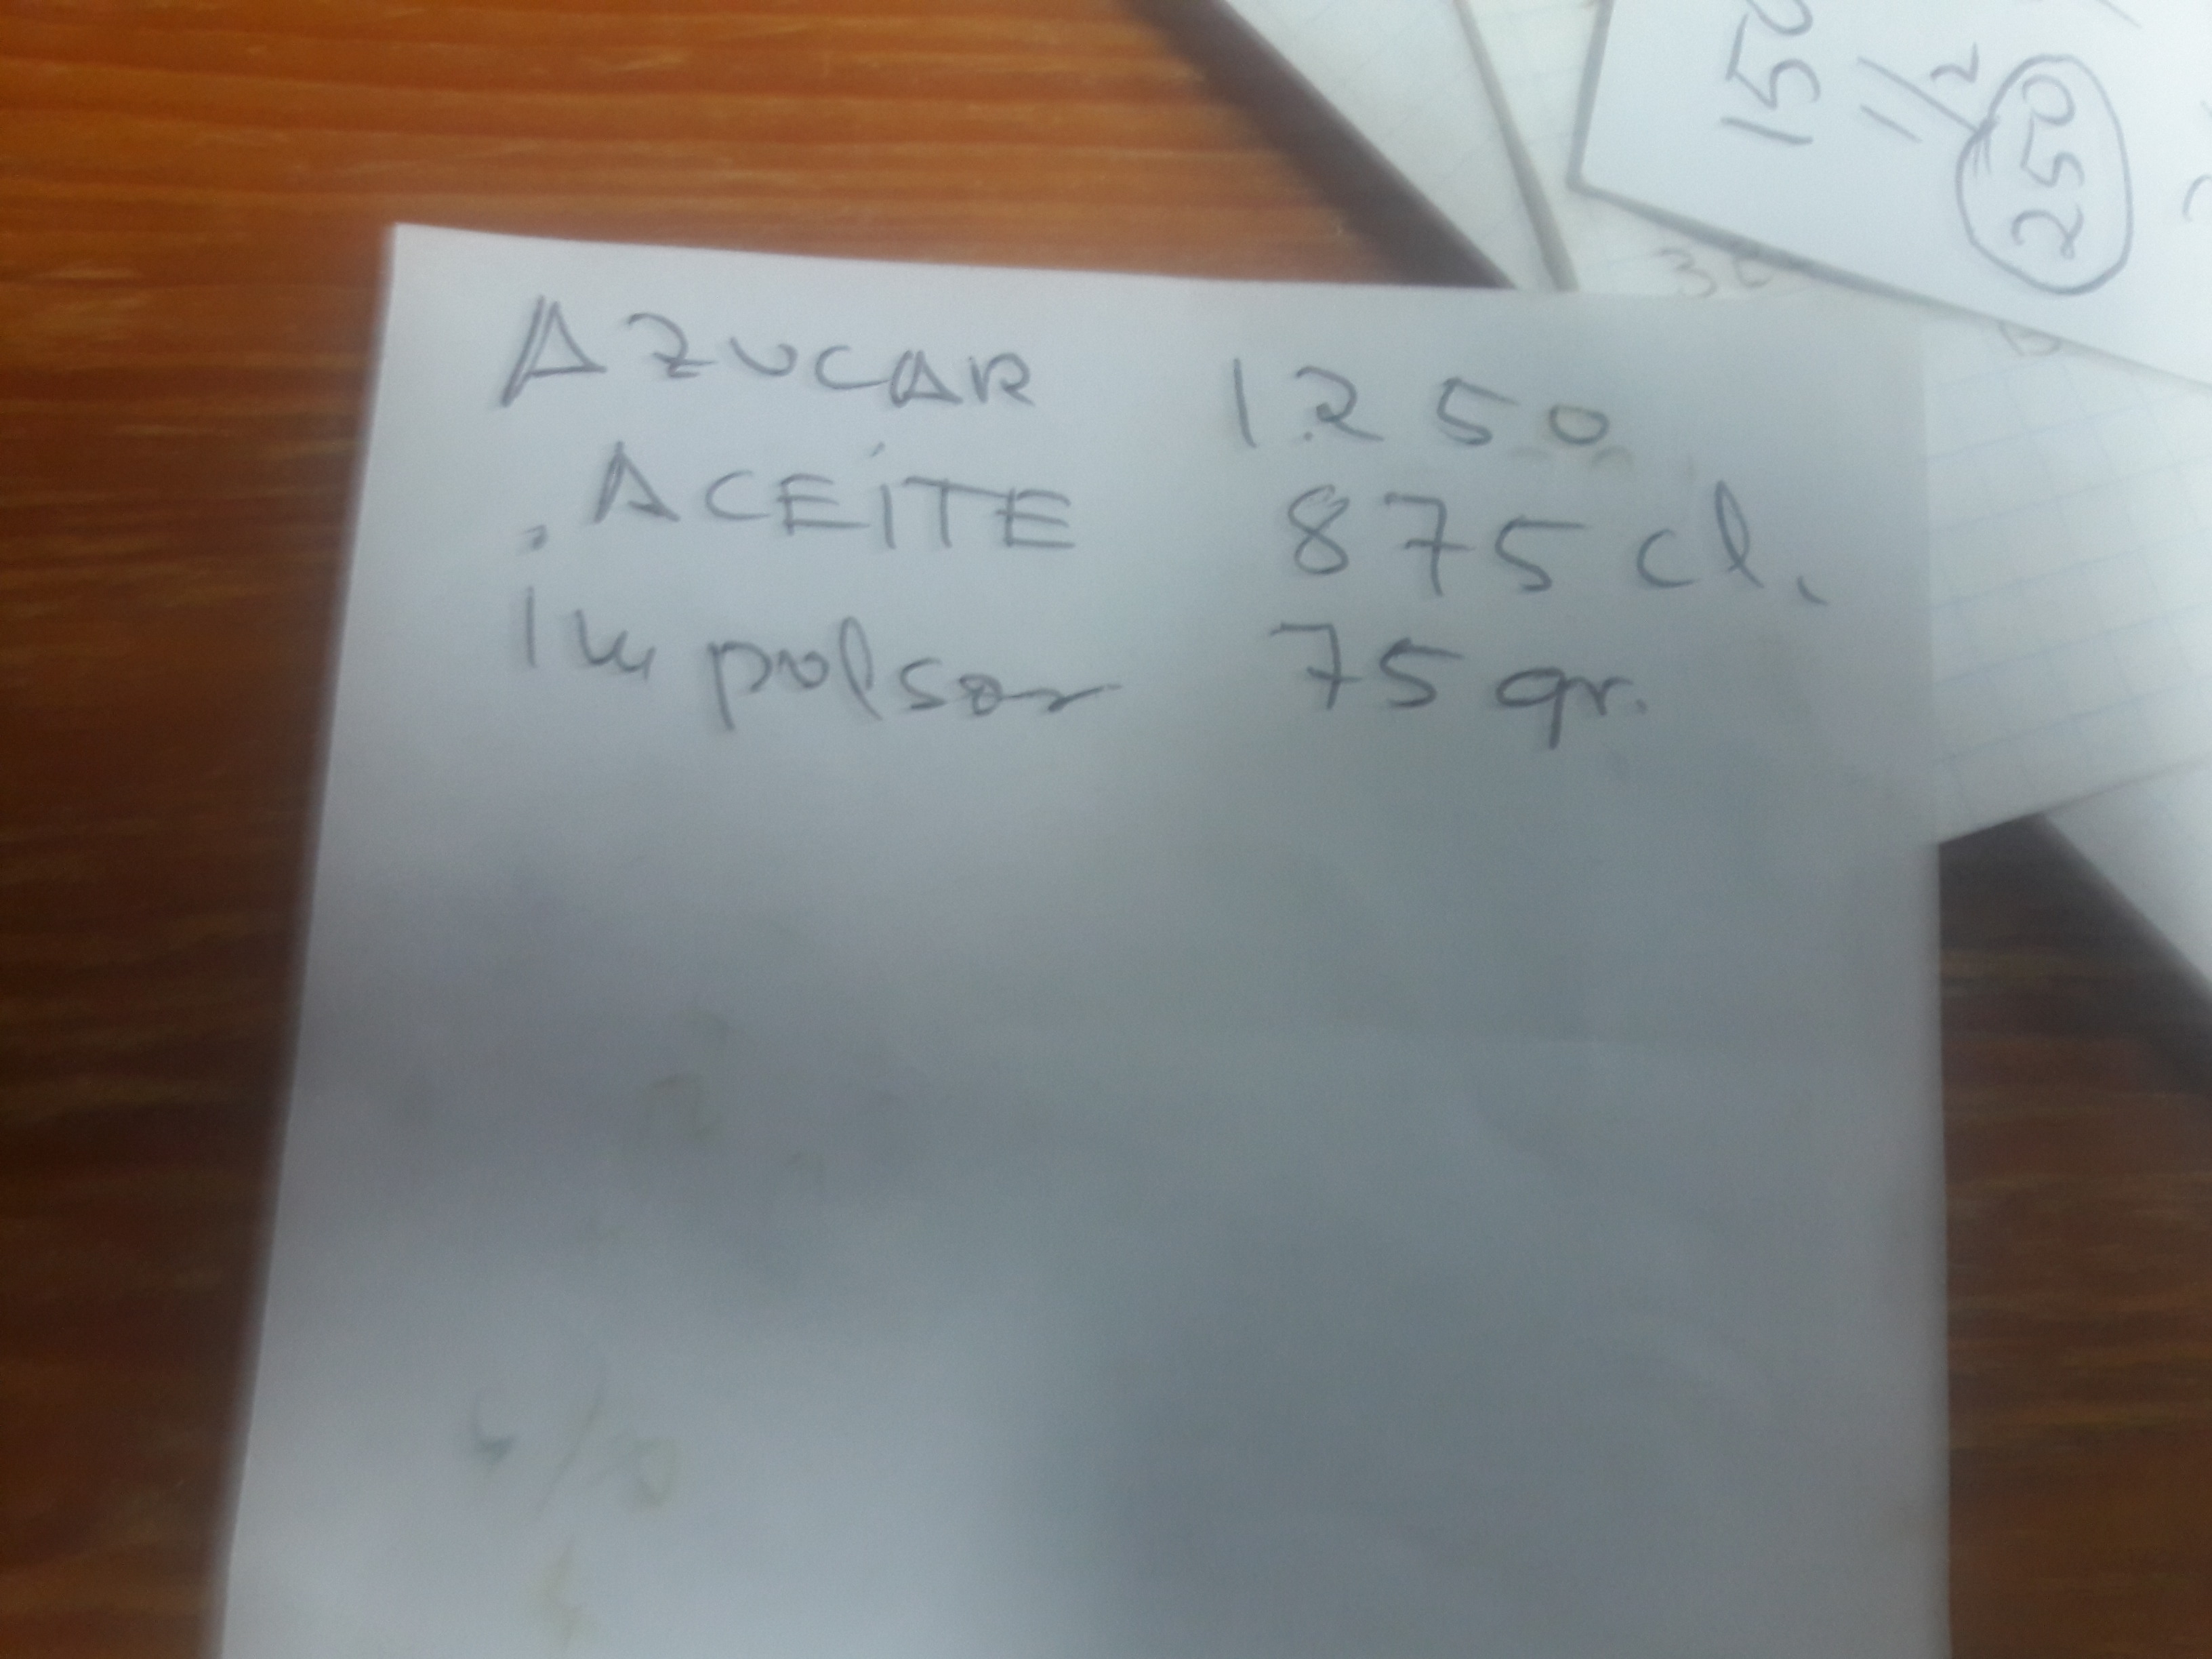 AZUCAR 1250
. ACEÍTE 875 cl.
Impolsor 75 gr.
150
1/2
250